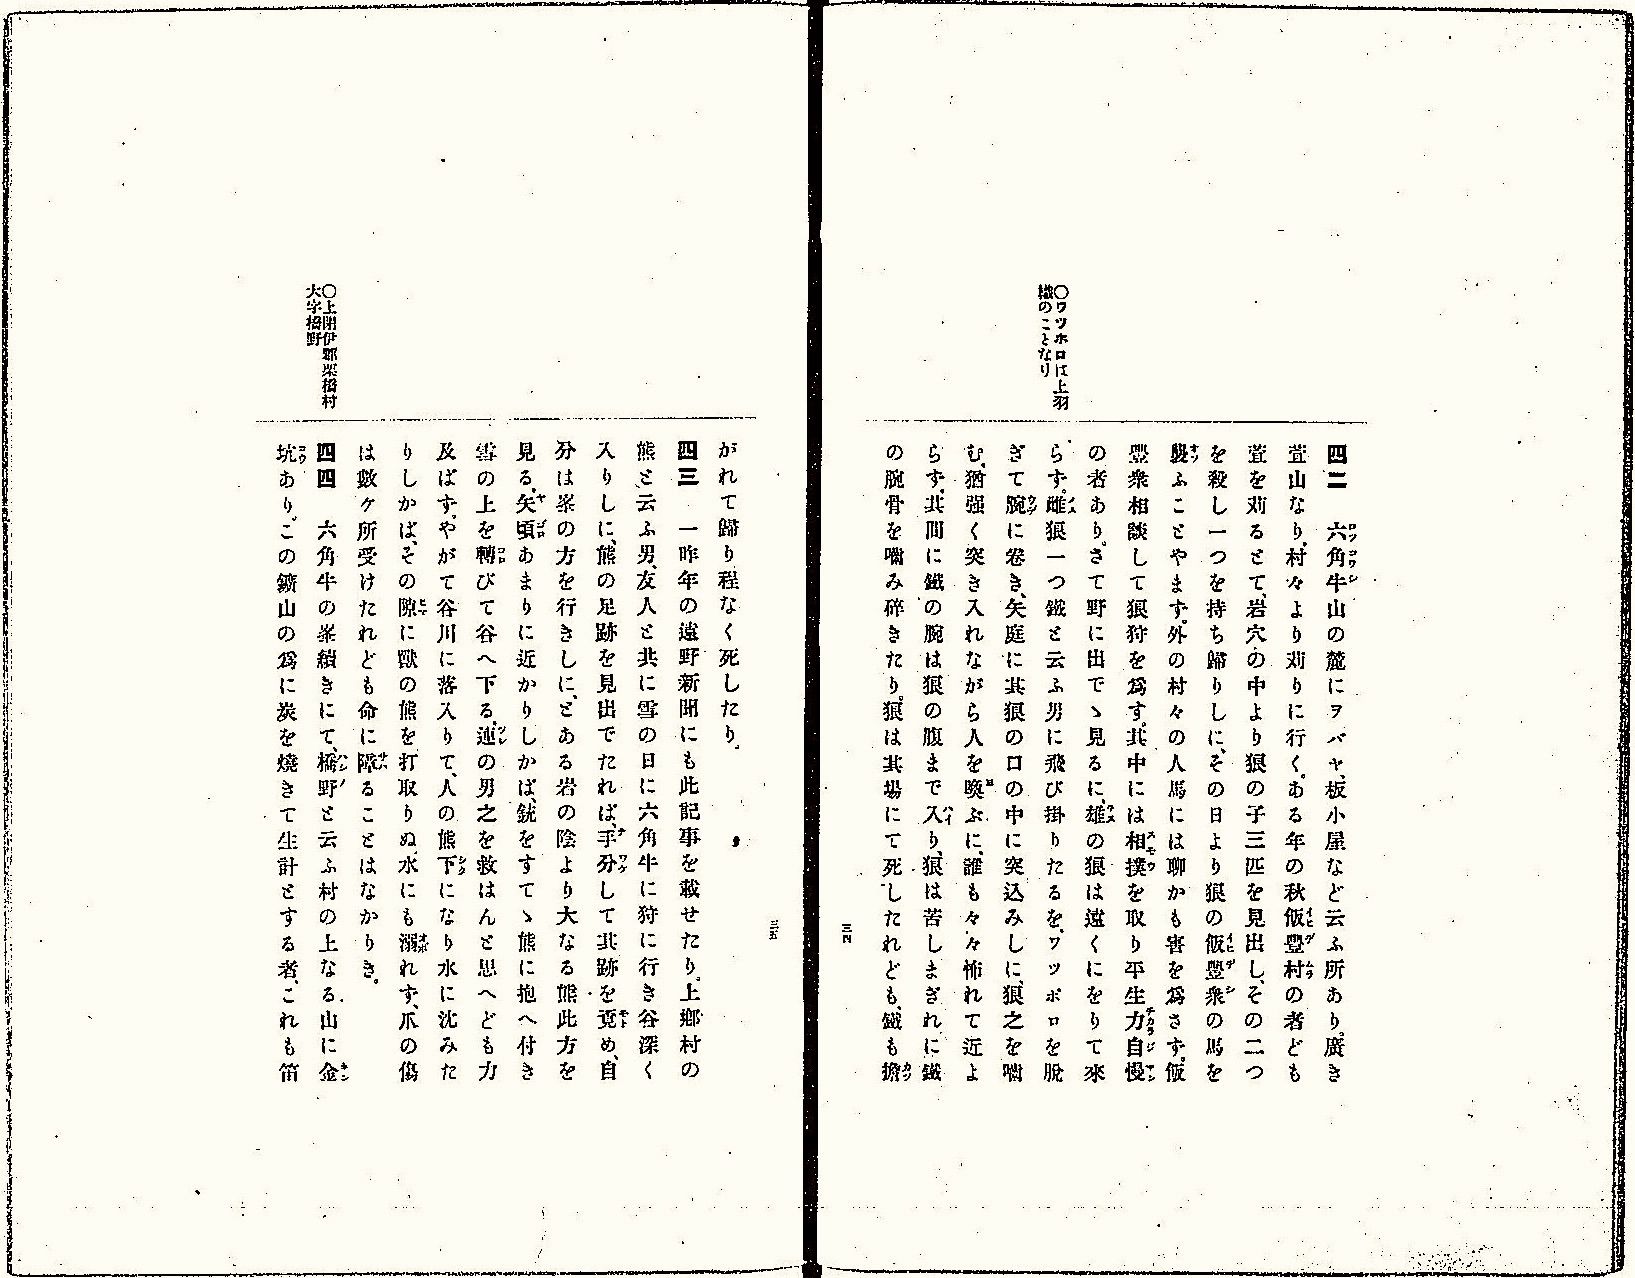 〇ワツホロは上羽
織のことなり
四二　六角牛山の麓にヲバヤ、板小屋など云ふ所あり。廣き
萱山なり。村々より苅りに行く。ある年の秋飯豐村の者ども
萱を苅るとて、岩穴の中より狼の子三匹を見出し、その二つ
を殺し一つを持ち歸りしに、その日より狼の飯豐衆の馬を
襲ふことやまず。外の村々の人馬には聊かも害を爲さず。飯
豐衆相談して狼狩を爲す。其中には相撲を取り平生力自慢
の者あり。さて野に出でゝ見るに、雄の狼は遠くにをりて來
らず。雌狼一つ鐵と云ふ男に飛び掛りたるを、ワツポロを脱
ぎて腕に卷き、矢庭に其狼の口の中に突込みしに、狼之を噛
む。猶強く突き入れながら人を喚ぶに、誰も々々怖れて近よ
らず。其間に鐵の腕は狼の腹まで入り、狼は苦しまぎれに鐵
の腕骨を噛み碎きたり。狼は其場にて死したれども、鐵も擔
三四
がれて歸り程なく死したり。
四三　一昨年の遠野新聞にも此記事を載せたり。上郷村の
熊と云ふ男、友人と共に雪の日に六角牛に狩に行き谷深く
入りしに、熊の足跡を見出でたれば、手分して其跡を覔め、自
分は峯の方を行きしに、とある岩の陰より大なる熊此方を
見る。矢頃あまりに近かりしかば、銃をすてゝ熊に抱へ付き
雪の上を轉びて谷へ下る。連の男之を救はんと思へども力
及ばず。やがて谷川に落入りて、人の熊下になり水に沈みた
りしかば、その隙に獸の熊を打取りぬ。水にも溺れず、爪の傷
は數ケ所受けたれども命に障ることはなかりき。
〇上閉伊郡栗橋村
大字橋野
四四　六角牛の峯續きにて、橋野と云ふ村の上なる山に金
坑あり。この鑛山の爲に炭を燒きて生計とする者、これも笛
三五